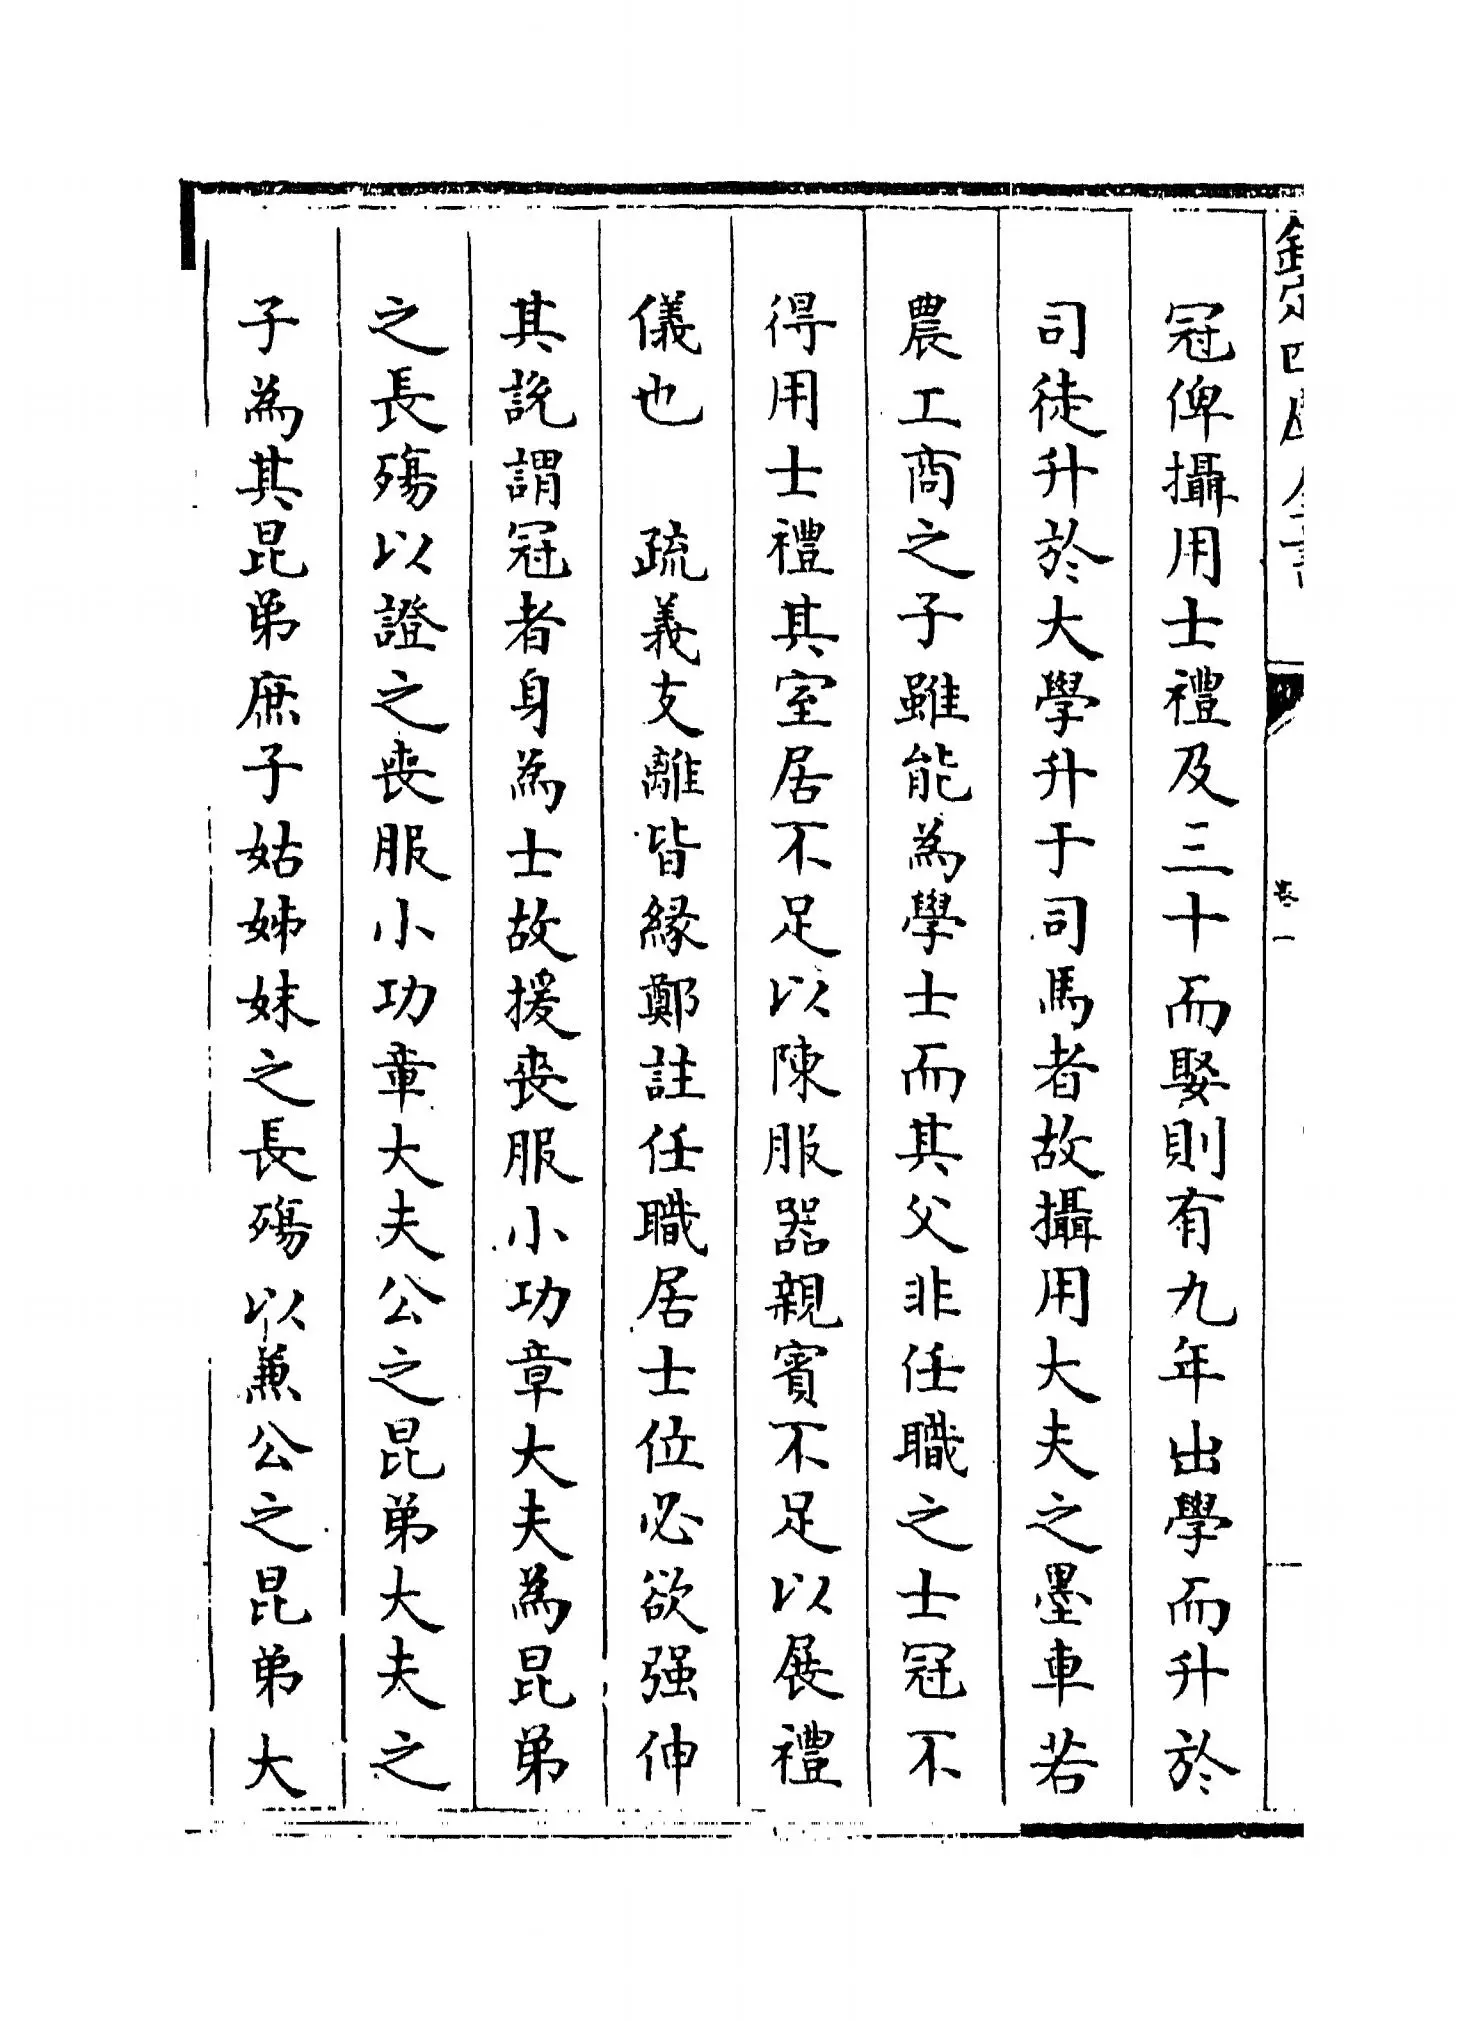 欽定四庫全書
卷一
冠俾攝用士禮及三十而娶則有九年出學而升於
司徒升於大學升于司馬者故攝用大夫之墨車若
農工商之子雖能為學士而其父非任職之士冠不
得用士禮其室居不足以陳服器親賓不足以展禮
儀也　疏義支離皆緣鄭註任職居士位必欲强伸
其説謂冠者身為士故援喪服小功章大夫為昆弟
之長殤以證之喪服小功章大夫公之昆弟大夫之
子為其昆弟庶子姑姊妹之長殤以兼公之昆弟大